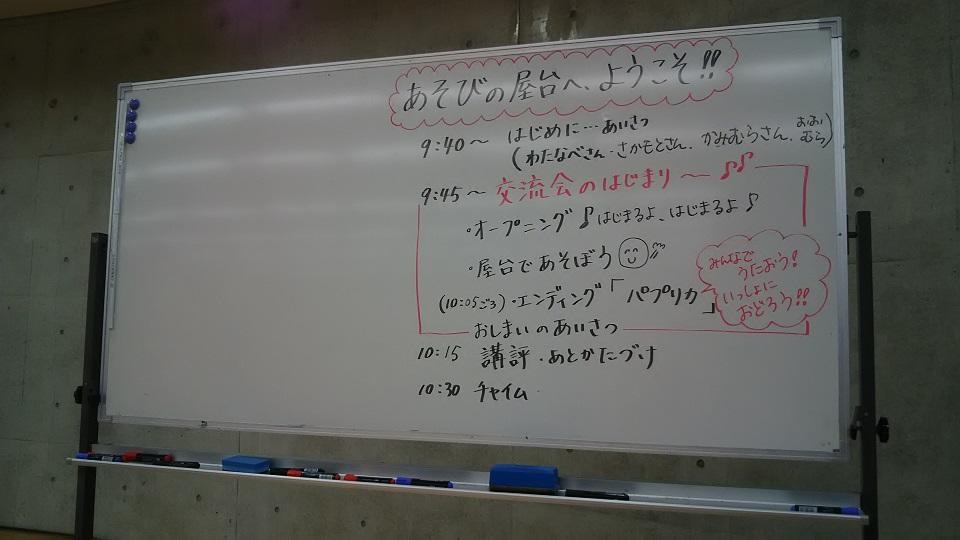 あそびの屋台へ、ようこそ!!
9:40～ はじめに…あいさつ
(わたなべさん・さかもとさん、かみむらさん、おおむら)
9:45～ 交流会のはじまり～♪♪
・オープニング♪はじまるよ、はじまるよ♪
・屋台であそぼう
(10:05ごろ)・エンディング「パプリカ」
みんなで
うたおう!
いっしょに
おどろう!!
おしまいのあいさつ
10:15 講評・あとかたづけ
10:30 チャイム